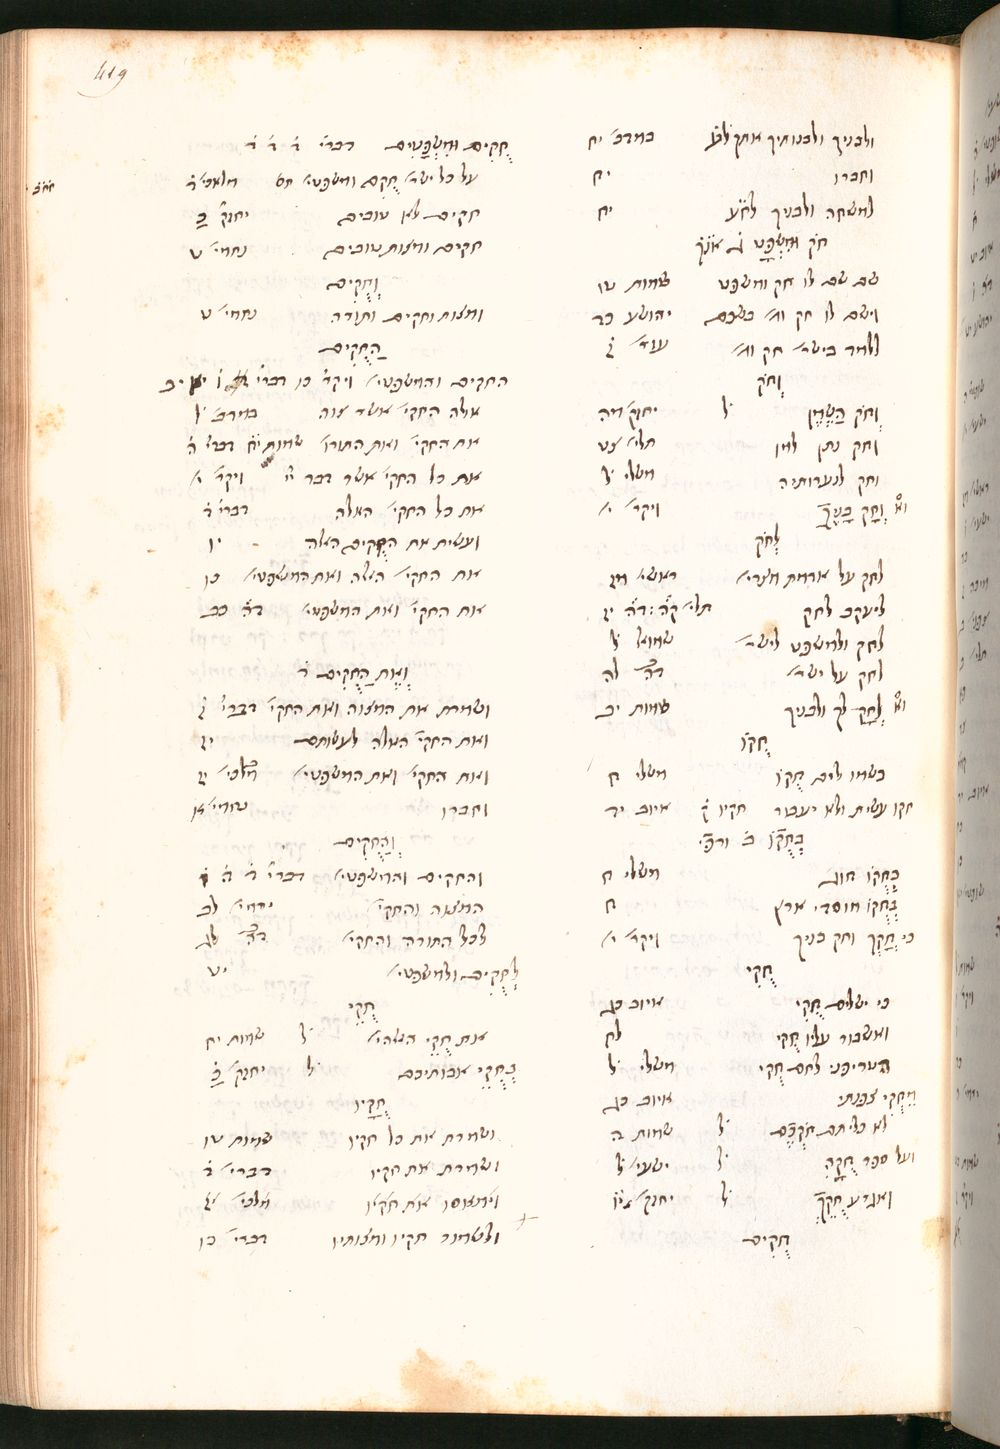 419
ולבניך ולבנותיך אתך לחק במדב׳ יח
וחברו יח
למשחה ולבניך לחק יח
חק ומשפט
שם שם לו חק ומשפט שמות טו
וישם לו חק ומ׳ בשכם יהושע כד
ללמד בישר׳ חק ומ׳ עזר׳ ז
וְחֹק
וְחֹק הַשֶּׁמֶן ל׳ יחזק׳ מה
וחק נתן למו תלי׳ צט
וחק לנערותיה משלי ל׳
וא֯ וְחָק בָּנֶיךָ ויקר׳ י׳
לְחֹק
לחק על אדמת מצרי׳ ראשי׳ מז
ליעקב לחק תלי׳ קה׃
לחק ולמשפט לישר׳ שמואל ל׳
לחק על ישר׳ דה֯ לה
וא֯ לְחָק לך ולבניך שמות יב
חֻקּוֹ
בשמו לים חֻקּוֹ משלי ח
חקו עשית ולא יעבור איוב יד
בְּחֻקּוֹ ב֯
בְּחֻקּוֹ חוג משלי ח
בְּחֻקּוֹ מוסדי ארץ ח
כי חָקְךָ וחק בניך ויקר׳ י׳
חֻקִּי
כי ישלים חֻקִּי איוב כג
ואשבור עליו חֻקִּי לח
הטריפני לחם חֻקִּי משלי ל׳
מֵחֻקִּי צפנתי איוב כג
לא כליתם חׇקְכֶם ל׳ שמות ה
ועל ספר חֻקָּהּ ל׳ ישעי׳ ל׳
ואגרע חֻקֵּךְ ל׳ יחזק׳
חֻקִּים
חֻקִּים וּמִשְׁפָּטִים דברי׳ ד֯ ד֯ ד֯
על כל ישר׳ חֻקִּים ומשפטי׳ מלאכי׳ ג֯
חקים לא טובים יחזק׳ כ֯
חקים ומצות טובים נחמי׳ ט
וְחֻקִּים
ומצות וחקים ותורה נחמי׳ ט
הַחֻקִּים
החקים והמשפטי׳ ויקר֯ כו דברי׳ יב
אלה החקי׳ אשר צוה במדב׳ ל׳
את החקי׳ ואת התור׳ שמות יח דברי׳ ה֯
את כל החקי׳ אשר דבר ויקר׳ י׳
את כל החקי׳ האלה דברי׳
ועשית את החקים האלה יו
את החקי׳ האלה ואת המשפטי׳ כו
את החקי׳ ואת המשפטי׳ דה֯ כב
וְאֶת הַחֻקִּים
ושמרת את המצוה ואת החקי׳ דברי׳ ז֯
ואת החקי׳ האלה לעשותם יז
ואת החקי׳ ואת המשפטי׳ מלכי׳ יז
וחברו נחמי׳ א
וְהַחֻקִּים
והחקים והמשפטי׳ דברי׳
המצוה והחקי׳ ירמי׳ לב
לכל התורה והחקי׳ דה֯ לג
לְחֻקִּים ולמשפטי׳ יט
חֻקֵּי
את חֻקֵּי האלהי׳ ל׳ שמות יח
בְּחֻקֵּי אבותיכם ל׳ יחזק׳ כ֯
חֻקָּיו
ושמרת את כל חקיו שמות טו
ושמרת את חקיו דברי׳ ד֯
וימאסו את חקיו מלכי׳ יז
ולשמור חקיו ומצותיו דברי׳ כו